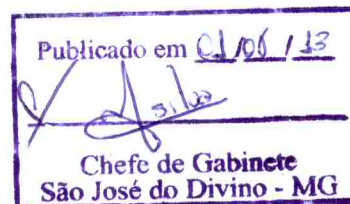 Publicado em 01/06/13
Chefe de Gabinete
São José do Divino - MG